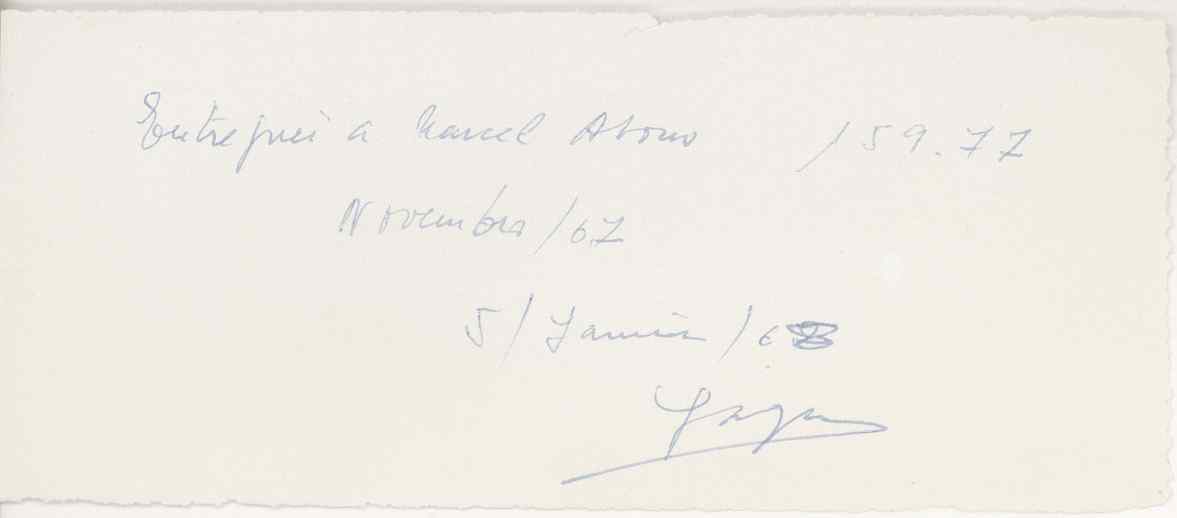 Entreguei a Marcel Abono 159.77
Novembro/67
5/Janeiro/68